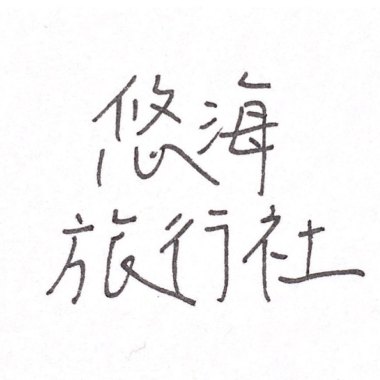 悠海
旅行社